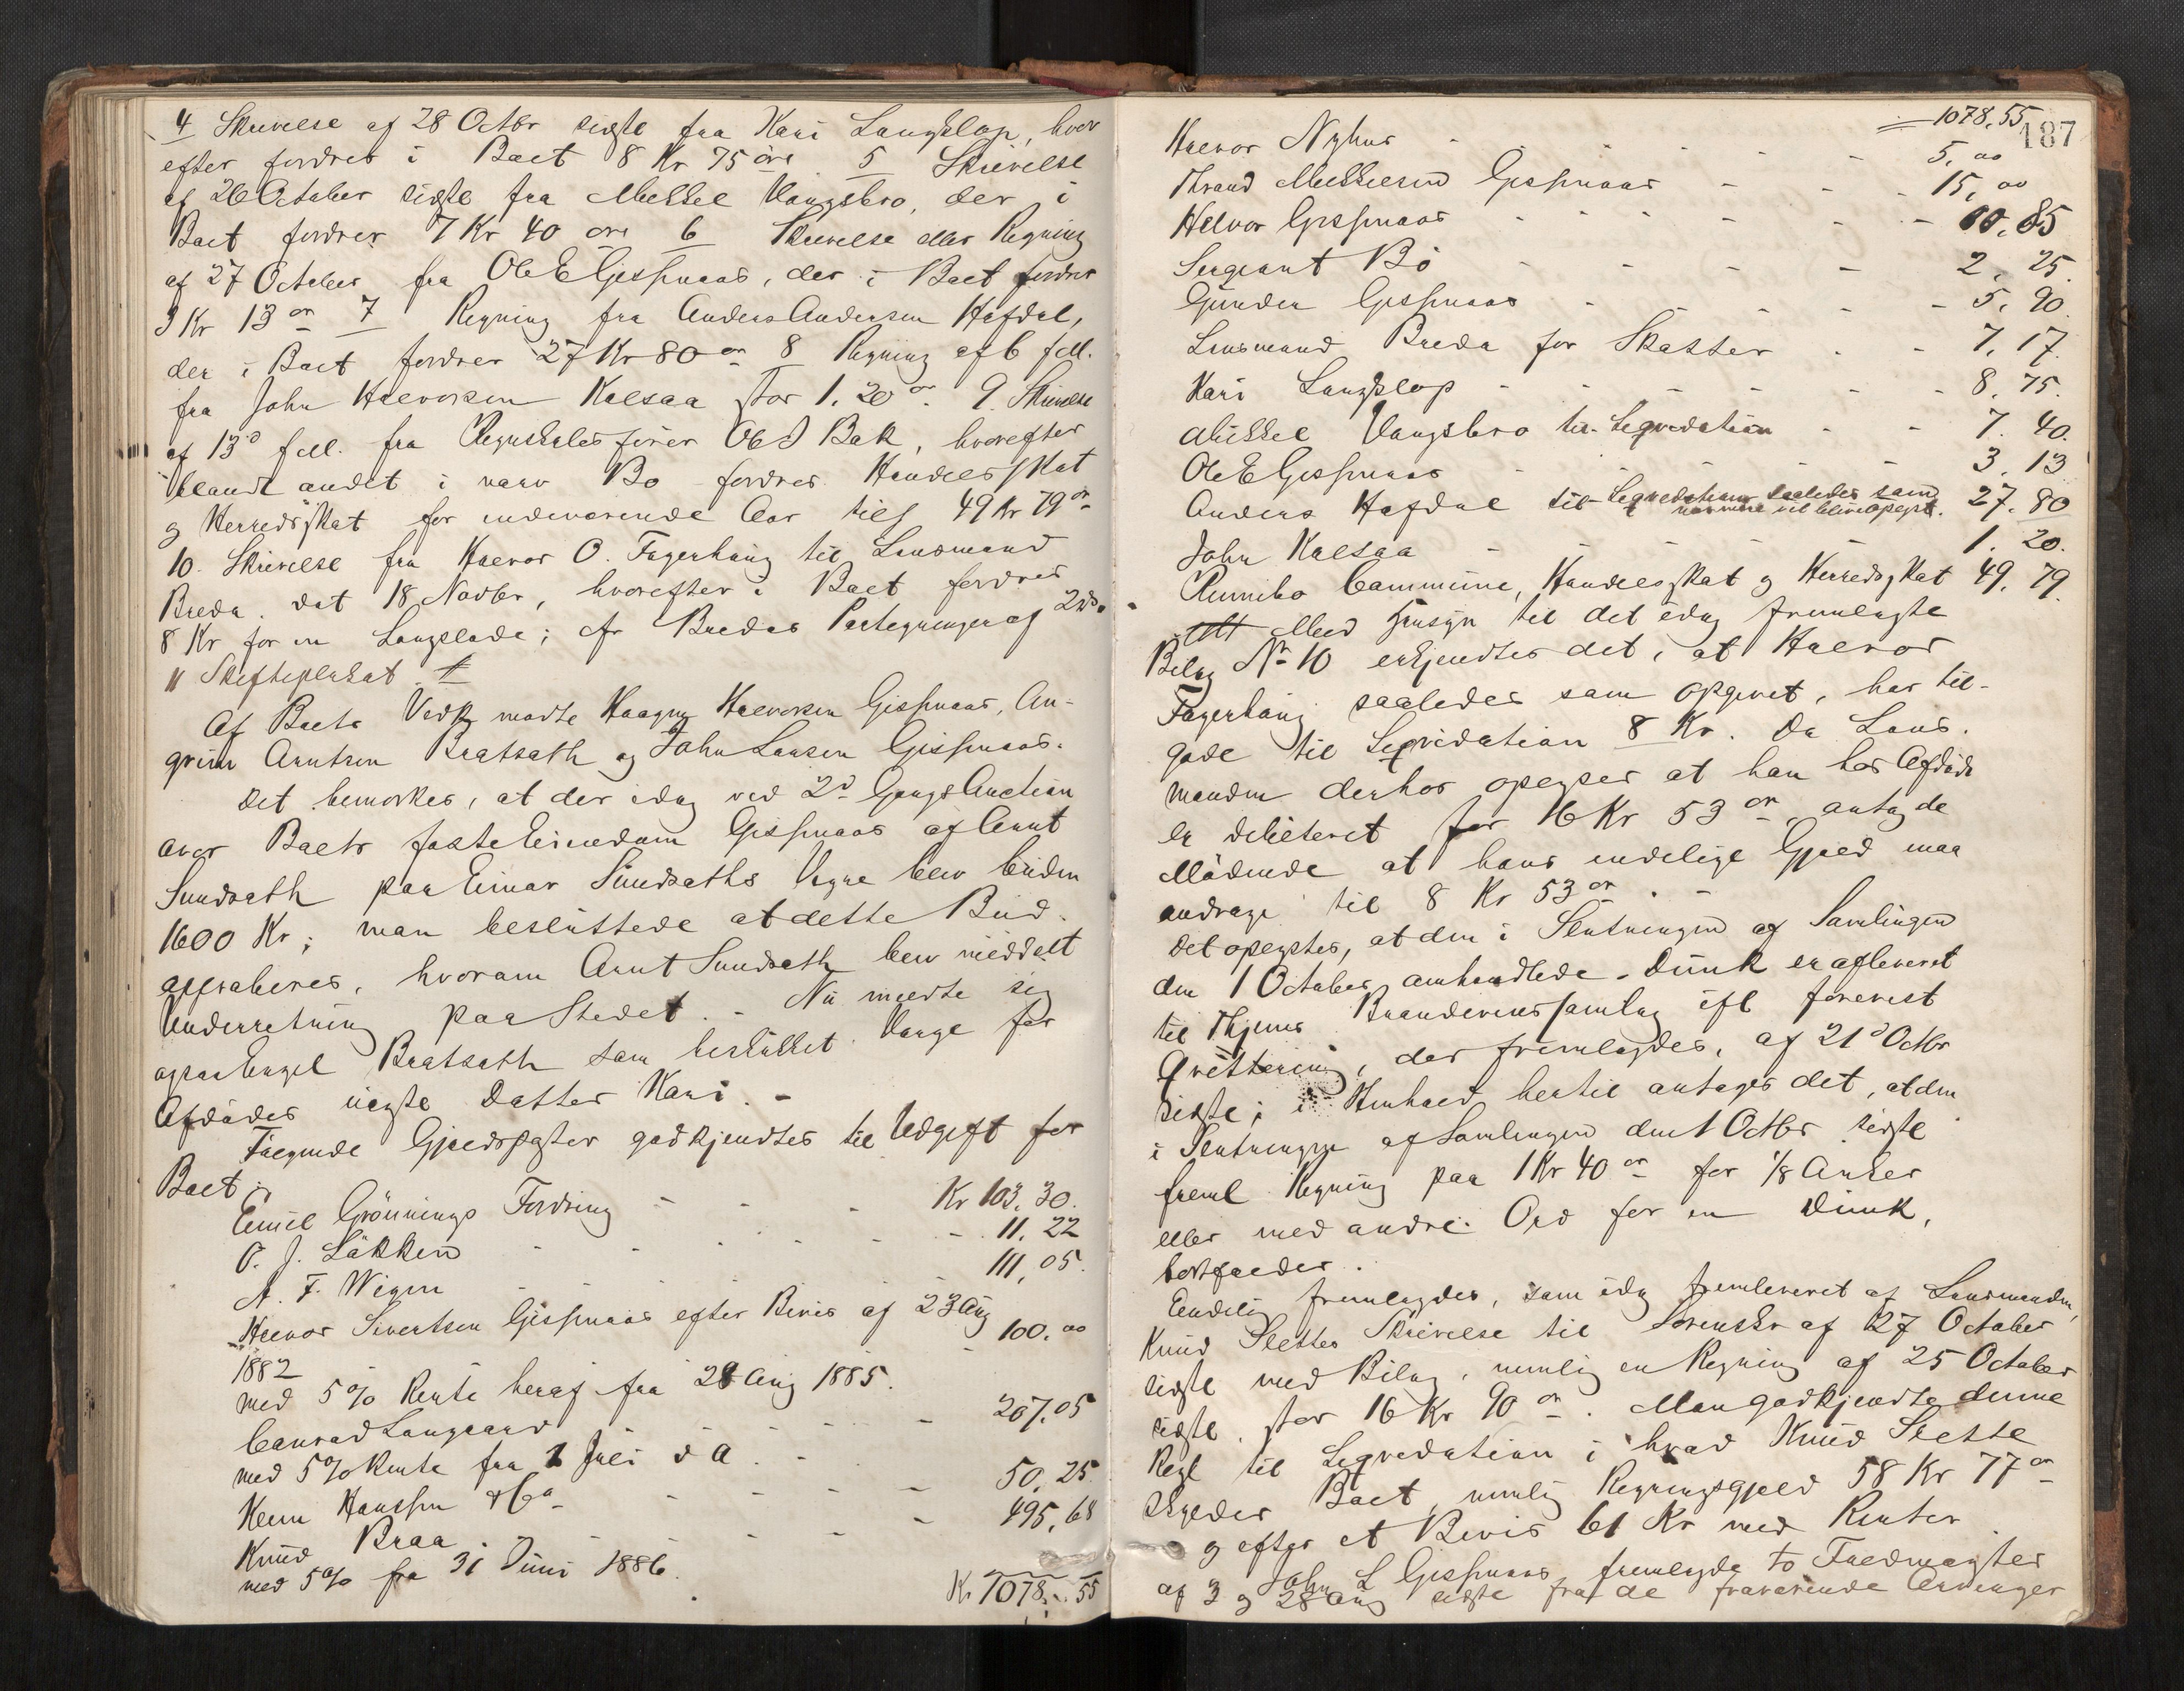 4 Skrivelse af 28 Octbr sidste fra Kari Langklop, hvor
efter fordres i Boet 8 Kr 75 öre 5 Skrivelse
af 26 October sidste fra Mikkel Vangsbro, der i
Boet fordrer 7 Kr 40 öre 6 Skrivelse eller Regning
af 27 October fra Ole E Gissnaas, der i Boet fordrer
3 Kr 13 ör 7 Regning fra Anders Andersen Hafdal,
der i Boet fordrer 27 Kr 80 ör 8 Regning af 6 f.M.
fra John Halvorsen Kalsaa stor 1. 20 ör. 9. Skrivelse
af 13de f.M. fra Regnskabsfører Ole J Bak, hvorefter
iblandt andet i nærv Bo fordres Handelsskat
og Herredsskat for indeværende Aar tils 49 Kr 79 ör
10. Skrivelse fra Halvor O. Fagerhaug til Lensmand
Breda. dat 18 Novbr, hvorefter i Boet fordres
8 Kr for en Langslæde; cfr Bredas Paategninger af 2 ds.
11 Skifteplakat
Af Boets Vedk mødte Haagen Halvorsen Gissnaas, An-
grim Arntsen Bratsath og John Larsen Gissnaas.
Det bemærkes, at der idag ved 2d Gangs Auction
over Boets faste Eiendom Gissnaas af Arnt
Sundsath paa Einar Sundsaths Vegne blev buden
1600 Kr; man besluttede at dette Bud
approberes, hvorom Arnt Sundseth blev meddelt
Underretning paa Stedet. - Nu mødte sig
ogsaa Engel Bratsath som beskikket Værge for
Afdødes yngste Datter Kari. -
Følgende Gjeldsposter godkjendtes til Udgift for
Boet:
Emil Grönnings Fordring - - - Kr 103. 30.
O. J. Løkken - - - - - 11. 22
A. F. Wigen - - - - 111, 05.
Halvor Sivertsen Gissnaas efter Bevis af 23 Aug
1882 - 100. 00
med 5% Rente heraf fra 28 Aug 1885.
Conrad Langaard - - - - 207. 05
med 5% Rente fra 1 Juli d A. -
Herm Hanssen & Co - - - - 50, 25.
Knud Braa - - - - 495, 68
med 5% fra 31 Juni 1886.
Kr 1078. 55
187
1078. 55
Halvor Nyhus - - - - - 5. 00
Thrond Mikkelsen Gissnaas - - - 15, 00
Halvor Gissnaas - - - - - 60. 85
Sergeant Bö - - - - 2. 25.
Gunder Gissnaas - - - - 5. 90.
Lensmand Breda for Skatter - - 7. 17.
Kari Langklop - - - - - 8. 75.
Mikkel Vangsbro til Liqvidation - - 7. 40.
Ole E Gissnaas - - - - 3. 13
Anders Hafdal til Liqvidation saaledes som
nærmere vil blive opgivt. 27. 80
John Kalsaa - - - - 1. 20.
Rennebo Commune, Handelsskat og Herredsskat 49. 79.
Med Hensyn til det idag fremlagte
Bilag No 10 erkjendtes det, at Halvor
Fagerhaug saaledes som opgivet, har til-
gode til Liqvidation 8 Kr. Da Lens-
manden derhos oplyser at han hos Afdøde
er debiteret for 16 Kr 53 ör, antog de
Mødende at hans endelige Gjæld maa
andrage til 8 Kr 53 ör. -
Det oplystes, at den i Slutningen af Samlingen
den 1 October omhandlede Dunk er afleveret
til Thjems Brændevinssamlag ifl forevist
Qvittering, der fremlagdes, af 21de Octbr
sidste; i Henhold hertil antages det, at den
i Slutningen af Samlingen den 1 Octbr sidste
freml Regning paa 1 Kr 40 ör for 1/8 Anker
eller med andre Ord for en Dunk,
bortfalder.
Endelig fremlagdes, som idag fremleveret af Lensmanden,
Knud Slettes Skrivelse til Sorenskr af 27 October
sidste med Bilag, nemlig en Regning af 25 October
sidste, stor 16 Kr 90 ör. Man godkjendte denne
Regl til Liqvidation i hvad Knud Slette
skylder Boet, nemlig Regningsgjæld 58 Kr 77 ör
og efter et Bevis 61 Kr med Renter.
John L Gissnaas fremlagde to Fuldmagter
af 3 og 28 Aug sidste fra de fraværende Arvinger